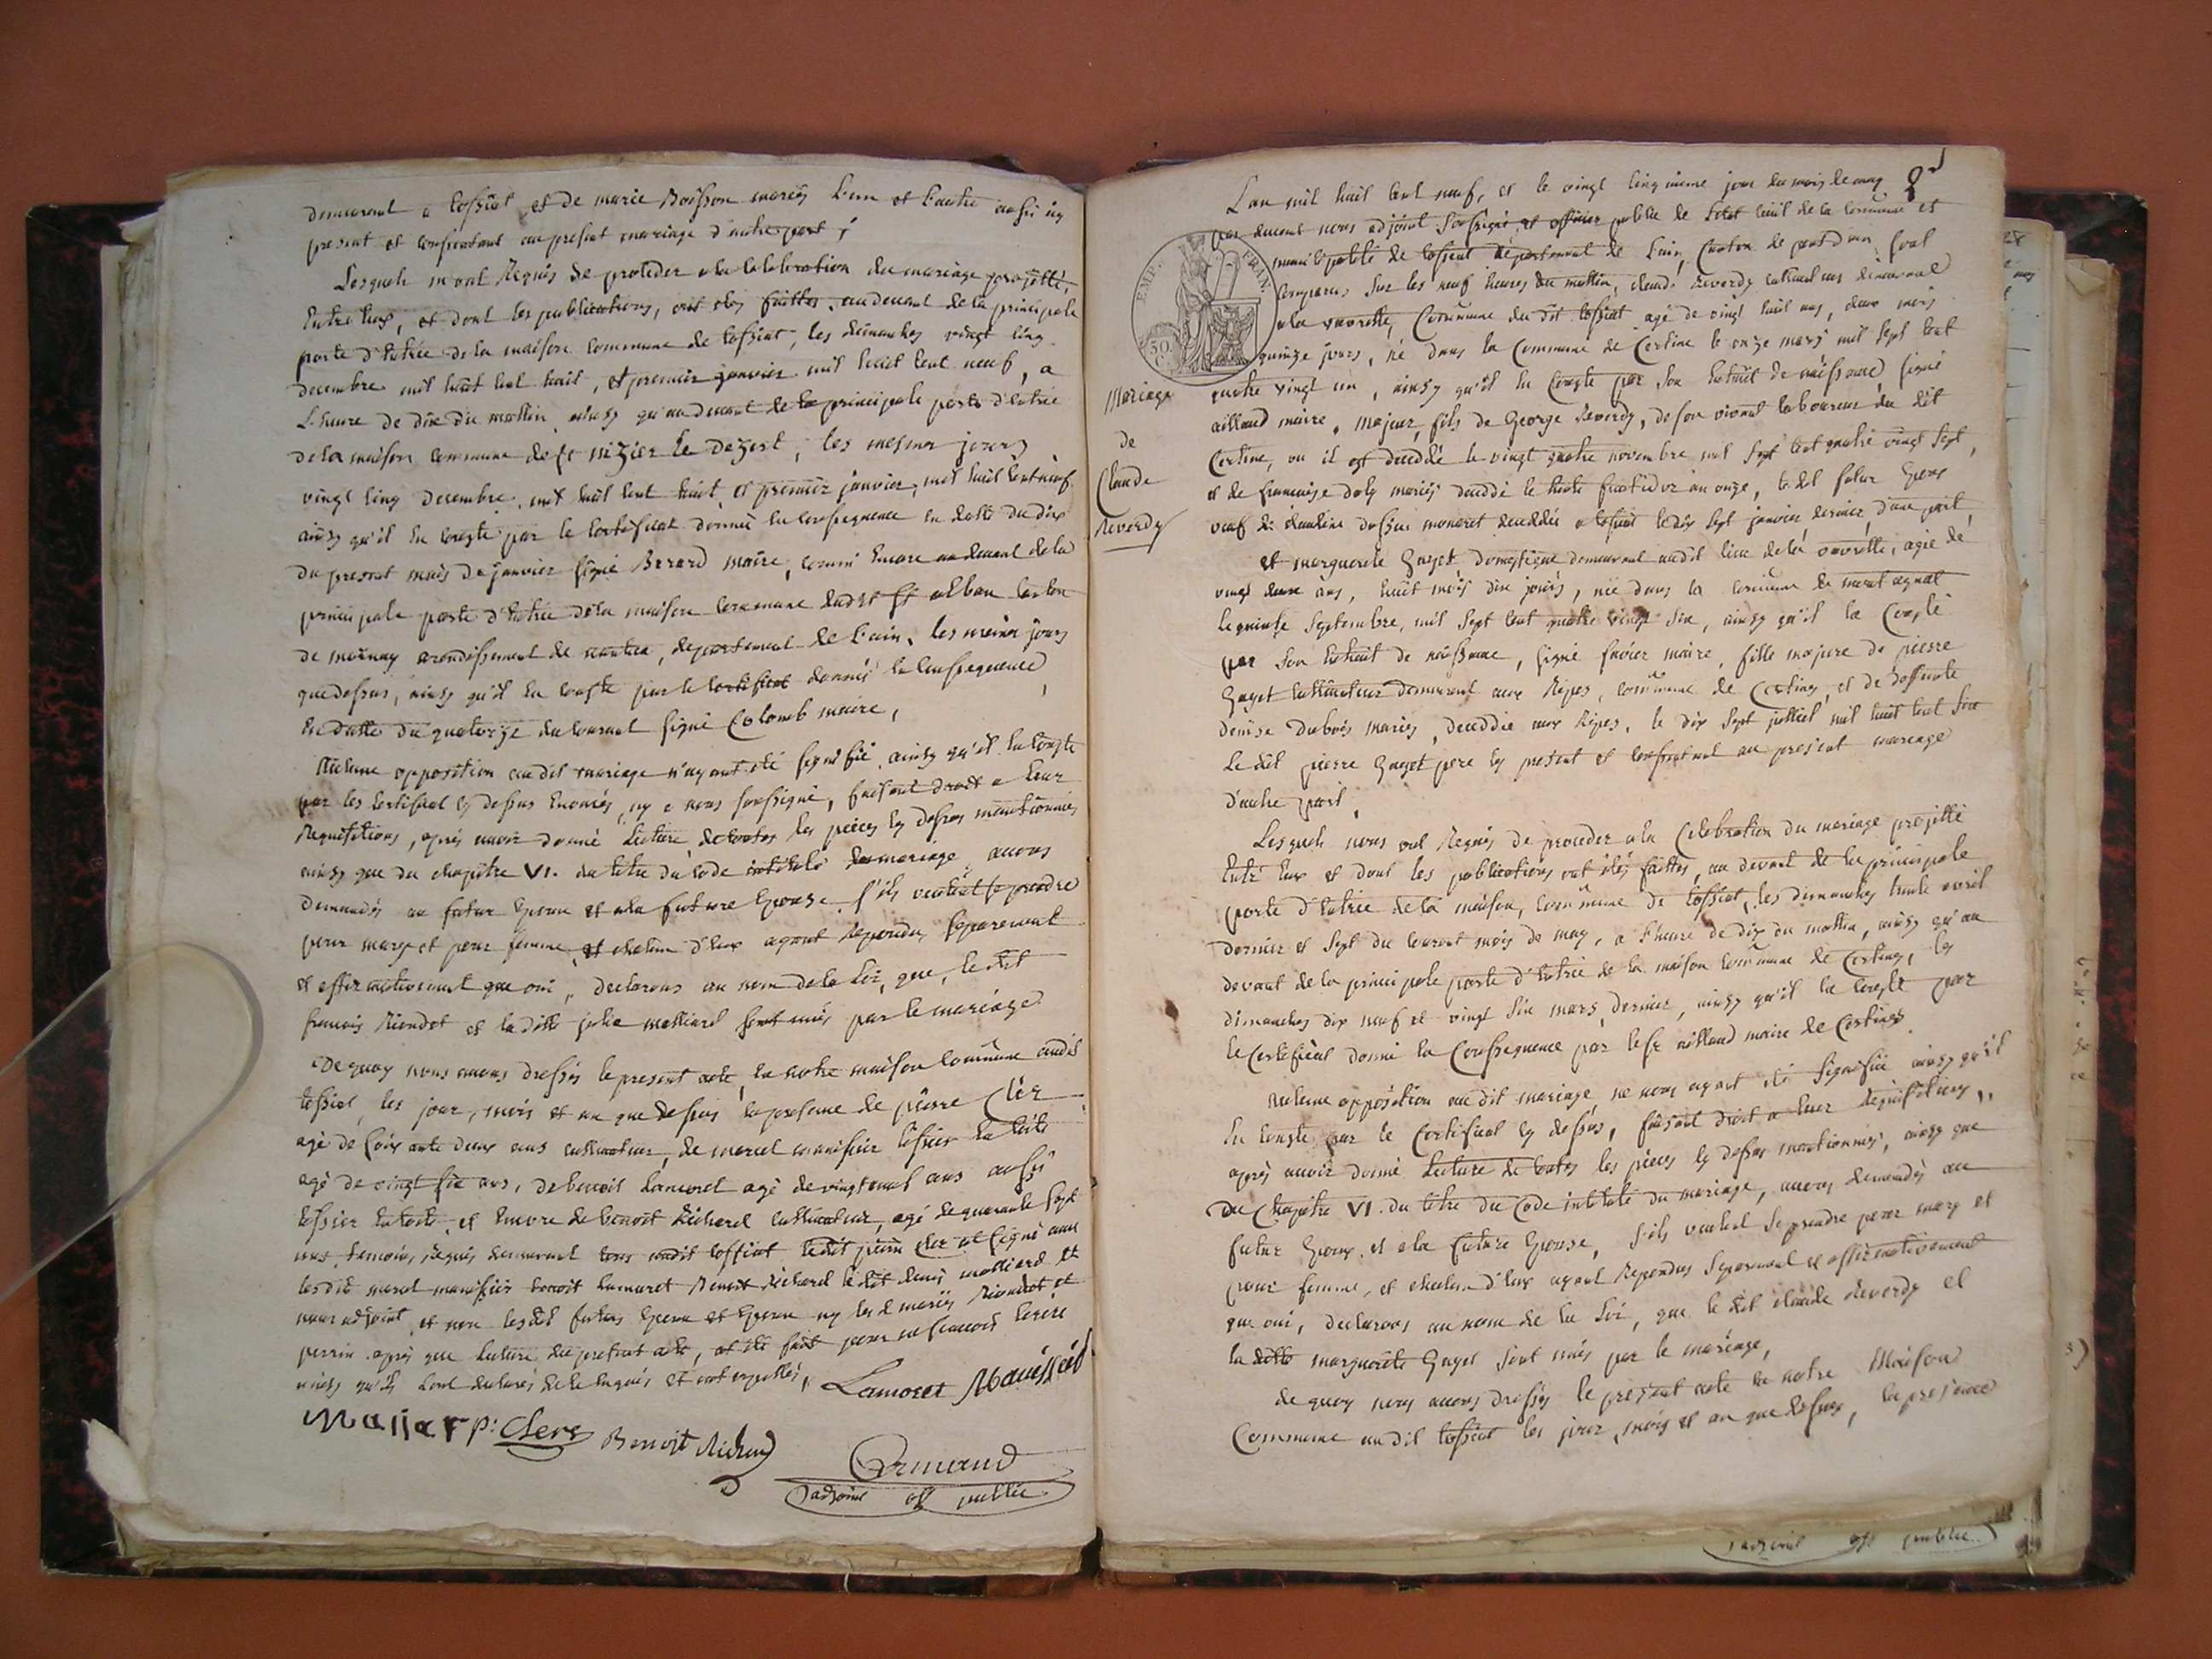 demeurant a tossiat et de marie Boisson mariés l'un et l'autre aussi icy
present et consentant au present mariage d'autre part ;
Lesquels m'ont Requis de proceder a la celebration du mariage projetté,
Entre Eux, et dont les publications, ont étés faittes, au devant de la principale
porte d'Entrée de la maison commune de tossiat, les dimanches vingt cinq
decembre mil huit cent huit, et premier janvier mil huit cent neuf, a
L'heure de dix du mattin, ainsy qu'au devant de la principale porte d'Entrée
de la maison commune de st nizier Le dezert, les mesmes jours
vingt cinq decembre mil huit cent huit, et premier janvier, mil huit Cent neuf
ainsy qu'il En Conste par le Certificat donné En Consequence en datte du dix
du present mois de janvier signé Berard maire, comm'Encore au devant de la
principale porte d'Entrée de la maison Commune dudit st alban canton
de arondissement de nantua, departement de L'ain, les mesmes jours
que dessus, ainsy qu'il En Conste par le Certificat donnés En Consequence,
En datte du quatorze du Courant signé Colomb maire,
Aucune opposition audit mariage n'ayant été signifié, ainsy qu'il En Conste
par les certificat cy dessus Enoncés, ny a nous soussigné, faisant droit a Leur
Requisitions, après avoir donné Lecture de toutes les pièces cy dessus mentionnées
ainsy que du chapitre VI. du titre du Code intitulé du mariage, avons
demandés au futur Epoux et a la future Epouse s'ils veulent se prendre
pour mary et pour femme, et chacun d'Eux ayant Repondus separement
et affirmativement que oui, declarons au nom de la Loi, que, le dit
francois Riondet et la ditte julie malliard sont unis par le mariage
De quoy nous avons dressés le present acte en notre maison Commune audit
tossiat, les jour, mois et an que dessus En presence de pierre Clér
agé de soixante deux ans cultivateur, de marcel manissier tissier En toile
agé de vingt six ans, de benoit Lamoret agé de vingt neuf ans aussi
tissier En toile, et Encore de benoit Richerd cultivateur, agé de quarante sept
ans temoins Requis demeurant tous audit tossiat le dit pierre Clér at signé avec
les dit marcel manissier benoit Lamoret Benoit Richard le dit denis malliard et
nous adjoint, et non les dit futurs Epoux et Epouse ny les mariés Riondet et
perrin après que Lecture du present acte, at été fait pour ne scavoir Ecrire
ainsy qu'ils L'ont declarés de ce Enquis et interpellés,
Lamoret Manissier
Malliar p: Clere Benoit Richerd
Armand
adjoint off public
Mariage
de
Claude
Reverdy
EMP. FRAN.
50
C.
2
L'an mil huit Cent neuf, et le vingt Cinquieme jour du mois de may
par devant nous adjoint soussigné et officier public de l'etat Civil de la Commune et
municipalité de tossiat departement de L'ain, Canton de pont d'ain, sont
Comparus sur les neuf heures du mattin, claude Reverdy cultivateur demeurant
a la vavrette, Commune du dit tossiat agé de vingt huit ans, deux mois
quinze jours, né dans la Commune de Certine le onze mars mil sept Cent
quatre vingt un, ainsy qu'il En Conste par son Extrait de naissance, signé
aillaud maire, majeur, fils de George Reverdy, de son vivant laboureur du dit
Certine, ou il est decédé le vingt quatre novembre mil sept Cent quatre vingt sept,
et de francoise mariés decedé le trente fructidor an onze, le dit futur Epoux
veuf de claudine monaret decedée a tossiat le dix sept janvier dernier, d'une part,
et marguerite Gayet domestique demeurant audit lieu de la vavrette, agée de
vingt deux ans, huit mois dix jours, née dans la Commune de mont agnat
le quinze septembre, mil sept Cent quatre vingt six, ainsy qu'il En Conste
par son Extrait de naissance, signé maire, fille majeure de pierre
Gayet cultivateur demeurant aux Ripes, Commune de Certines, et de deffunte
denise dubois mariés, decedée aux Ripes, le dix sept juillet mil huit Cent six
Le dit pierre Gayet pere icy present et Consentant au present mariage
d'autre part.
Lesquels nous ont Requis de proceder a la Celebration du mariage projetté
Entre Eux et dont les publications ont étés faittes, au devant de la principale
porte d'Entrée de la maison, Commune de tossiat, les dimanches trente avril
dernier et sept du Courant mois de may, a L'heure de dix du mattin, ainsy qu'au
devant de la principale porte d'Entrée de la maison Commune de Certines, les
dimanches dix neuf et vingt six mars dernier, ainsy qu'il En Conste par
le Certificat donné En Consequence par le sr aillaud maire de Certines
Aucune opposition audit mariage ne nous ayant été signifiée ainsy qu'il
En Conste par le Certificat cy dessus, faisant droit a leur Requisitions,
après avoir donné Lecture de toutes les pièces cy dessus mentionnés, ainsy que
du Chapitre VI. du titre du Code intitulé du mariage, avons demandés au
futur Epoux, et a la future Epouse, s'ils veulent se prendre pour mary et
pour femme, et chacun d'Eux ayant Repondus separement et affirmativement
que oui, declarons au nom de la Loi, que le dit claude Reverdy et
la ditte marguerite Gayet sont unis par le mariage,
de quoy nous avons dressés le present acte en notre Maison
Commune audit tossiat les jour, mois et an que dessus, En presence
adjoint off public